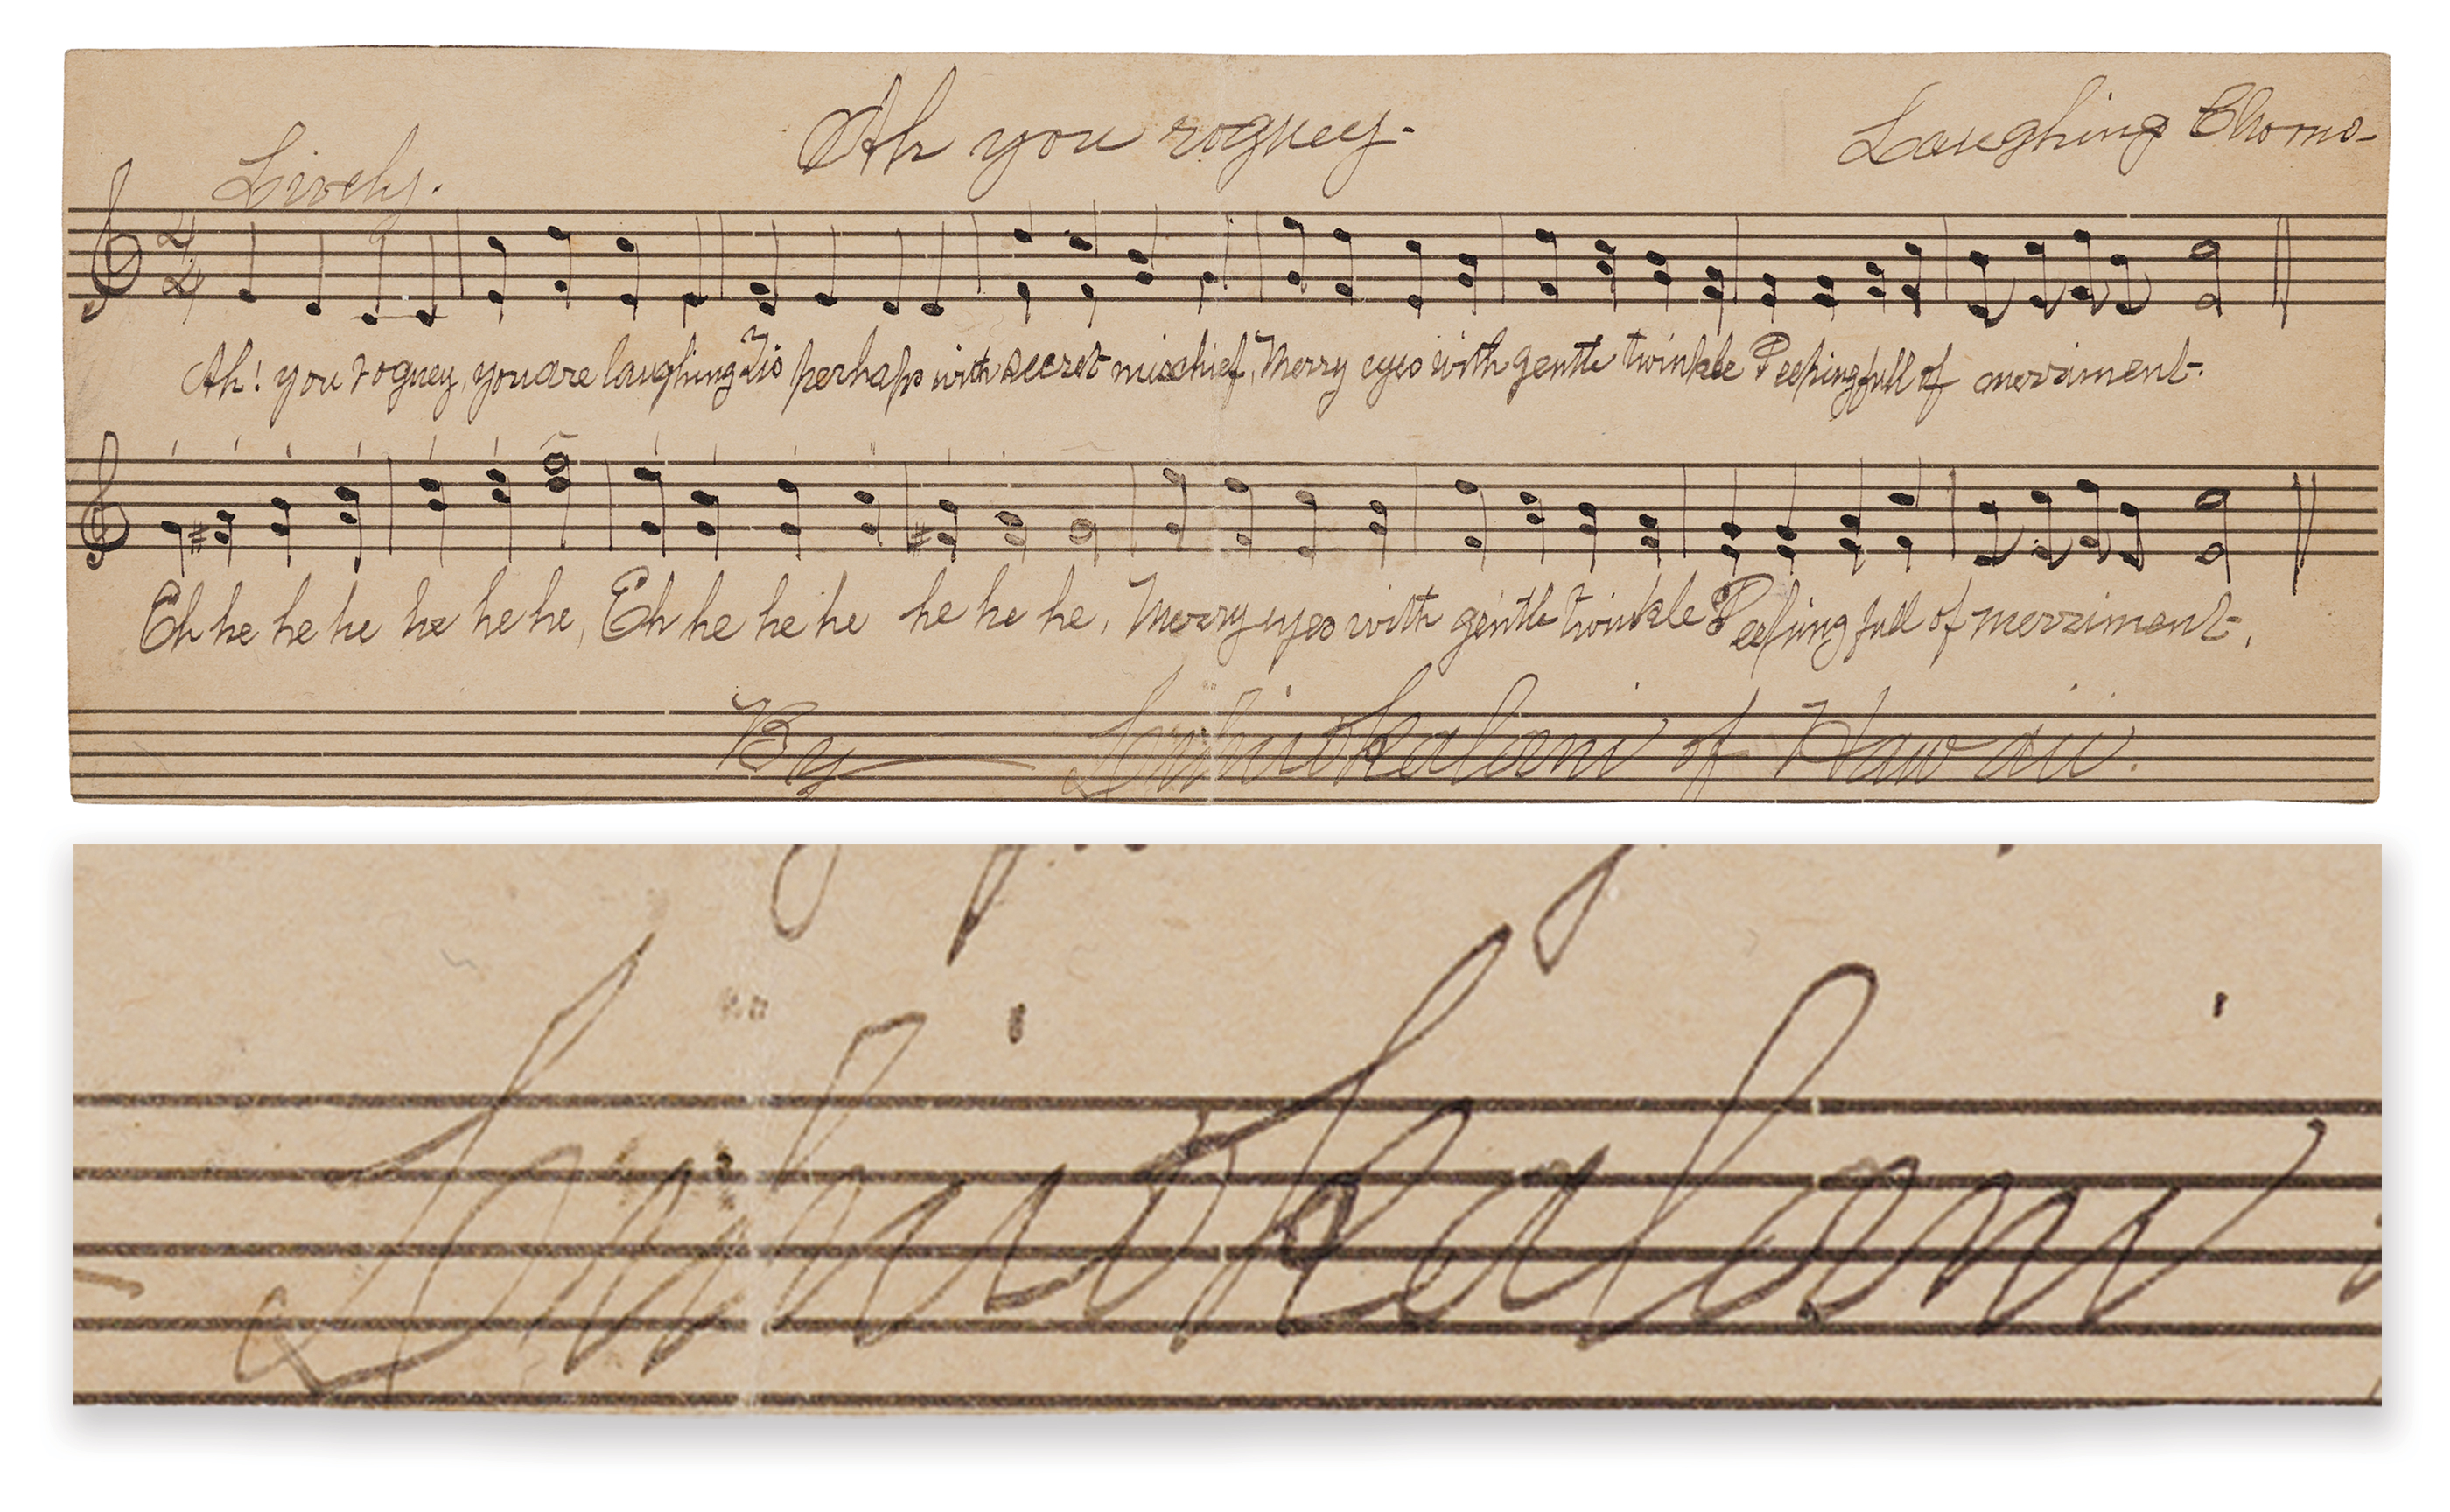 Ah you roguey-
Laughing Chorus-
Lively.
2
2
Ah! you roguey, you are laughing Tis perhaps with secret mischief, Merry eyes with gentle twinkle Peeping full of merriment.
Eh he he he he he he, Eh he he he he he he, Merry eyes with gentle twinkle Peeping full of merriment.
By Liliuokalani of Hawaii.
Liliuokalani